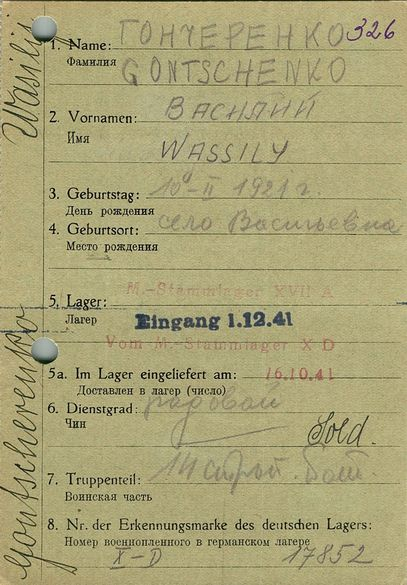 Wassilij
Gontscherenko
1. Name: ГОНЧЕРЕНКО 326
Фамилия
GONTSCHENKO
2. Vornamen: ВАСИЛИЙ
Имя
WASSILY
3. Geburtstag: 10-II 1921 г.
День рождения
4. Geburtsort: село Васильевна
Место рождения
5. Lager: M.-Stammlager XVII A
Лагерь
Eingang 1.12.41
Vom M.-Stammlager X D
5a. Im Lager eingeliefert am: 16.10.41
Доставлен в лагерь (число)
6. Dienstgrad: рядовой
Чин
Sold.
7. Truppenteil: 14 строй. бат.
Воинская часть
8. Nr. der Erkennungsmarke des deutschen Lagers:
Номер военнопленного в германском лагере
X-D 17852